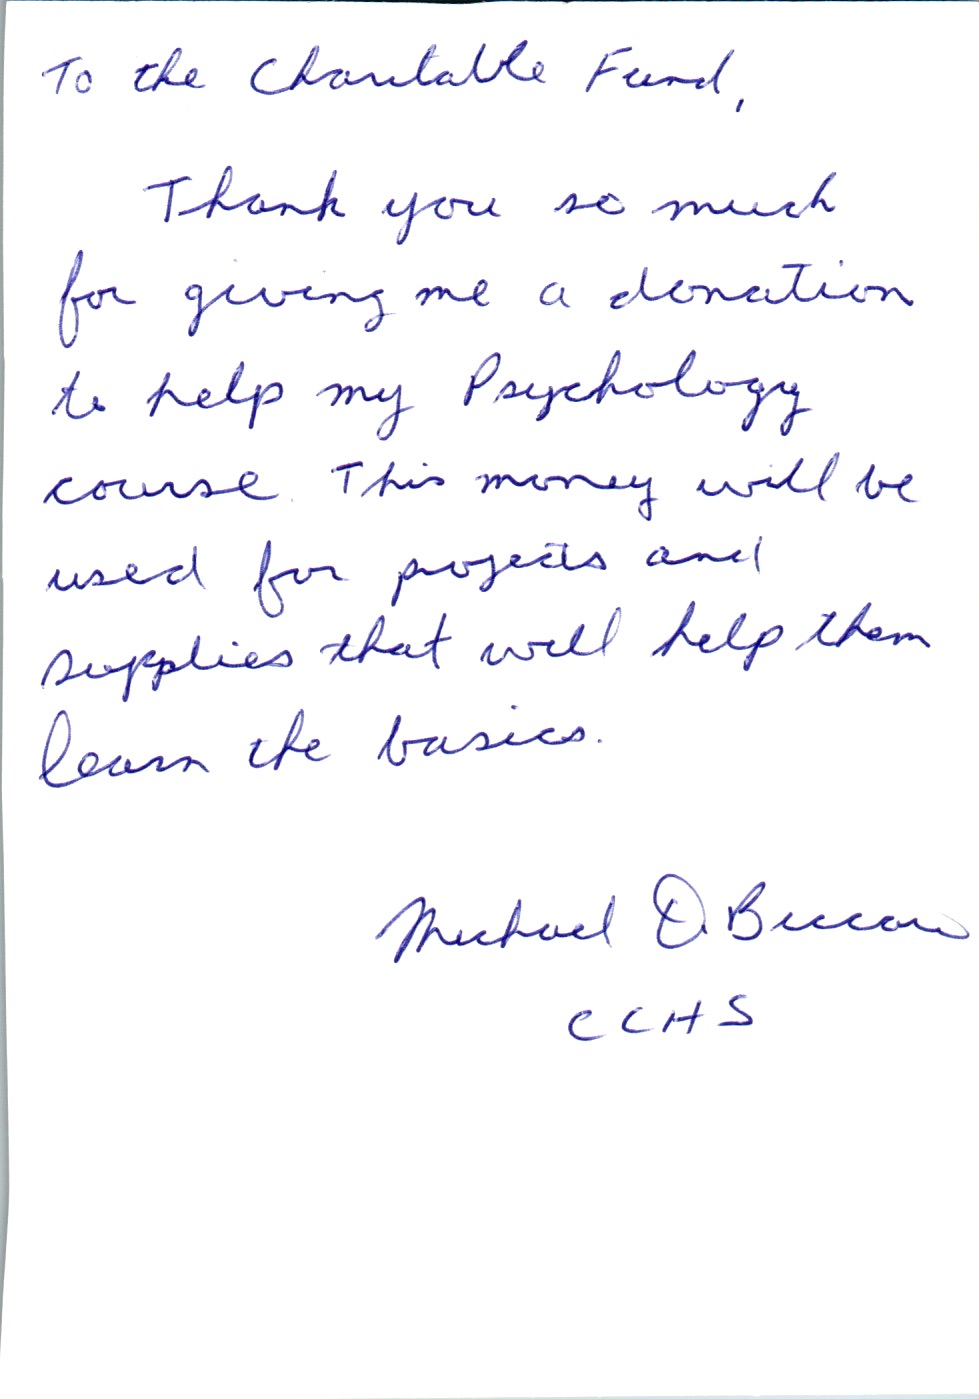 To the Charitable Fund,
Thank you so much
for giving me a donation
to help my Psychology
course. This money will be
used for projects and
supplies that will help them
learn the basics.
Michael
CCHS